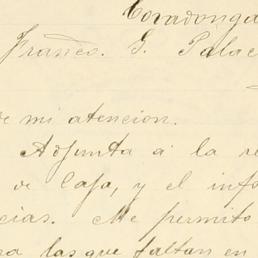 Covadonga
Franco. G. Palac
de mi atencion.
Adjunta á la re
de Caja, y el info
cias. Me permito
ra las que faltan en